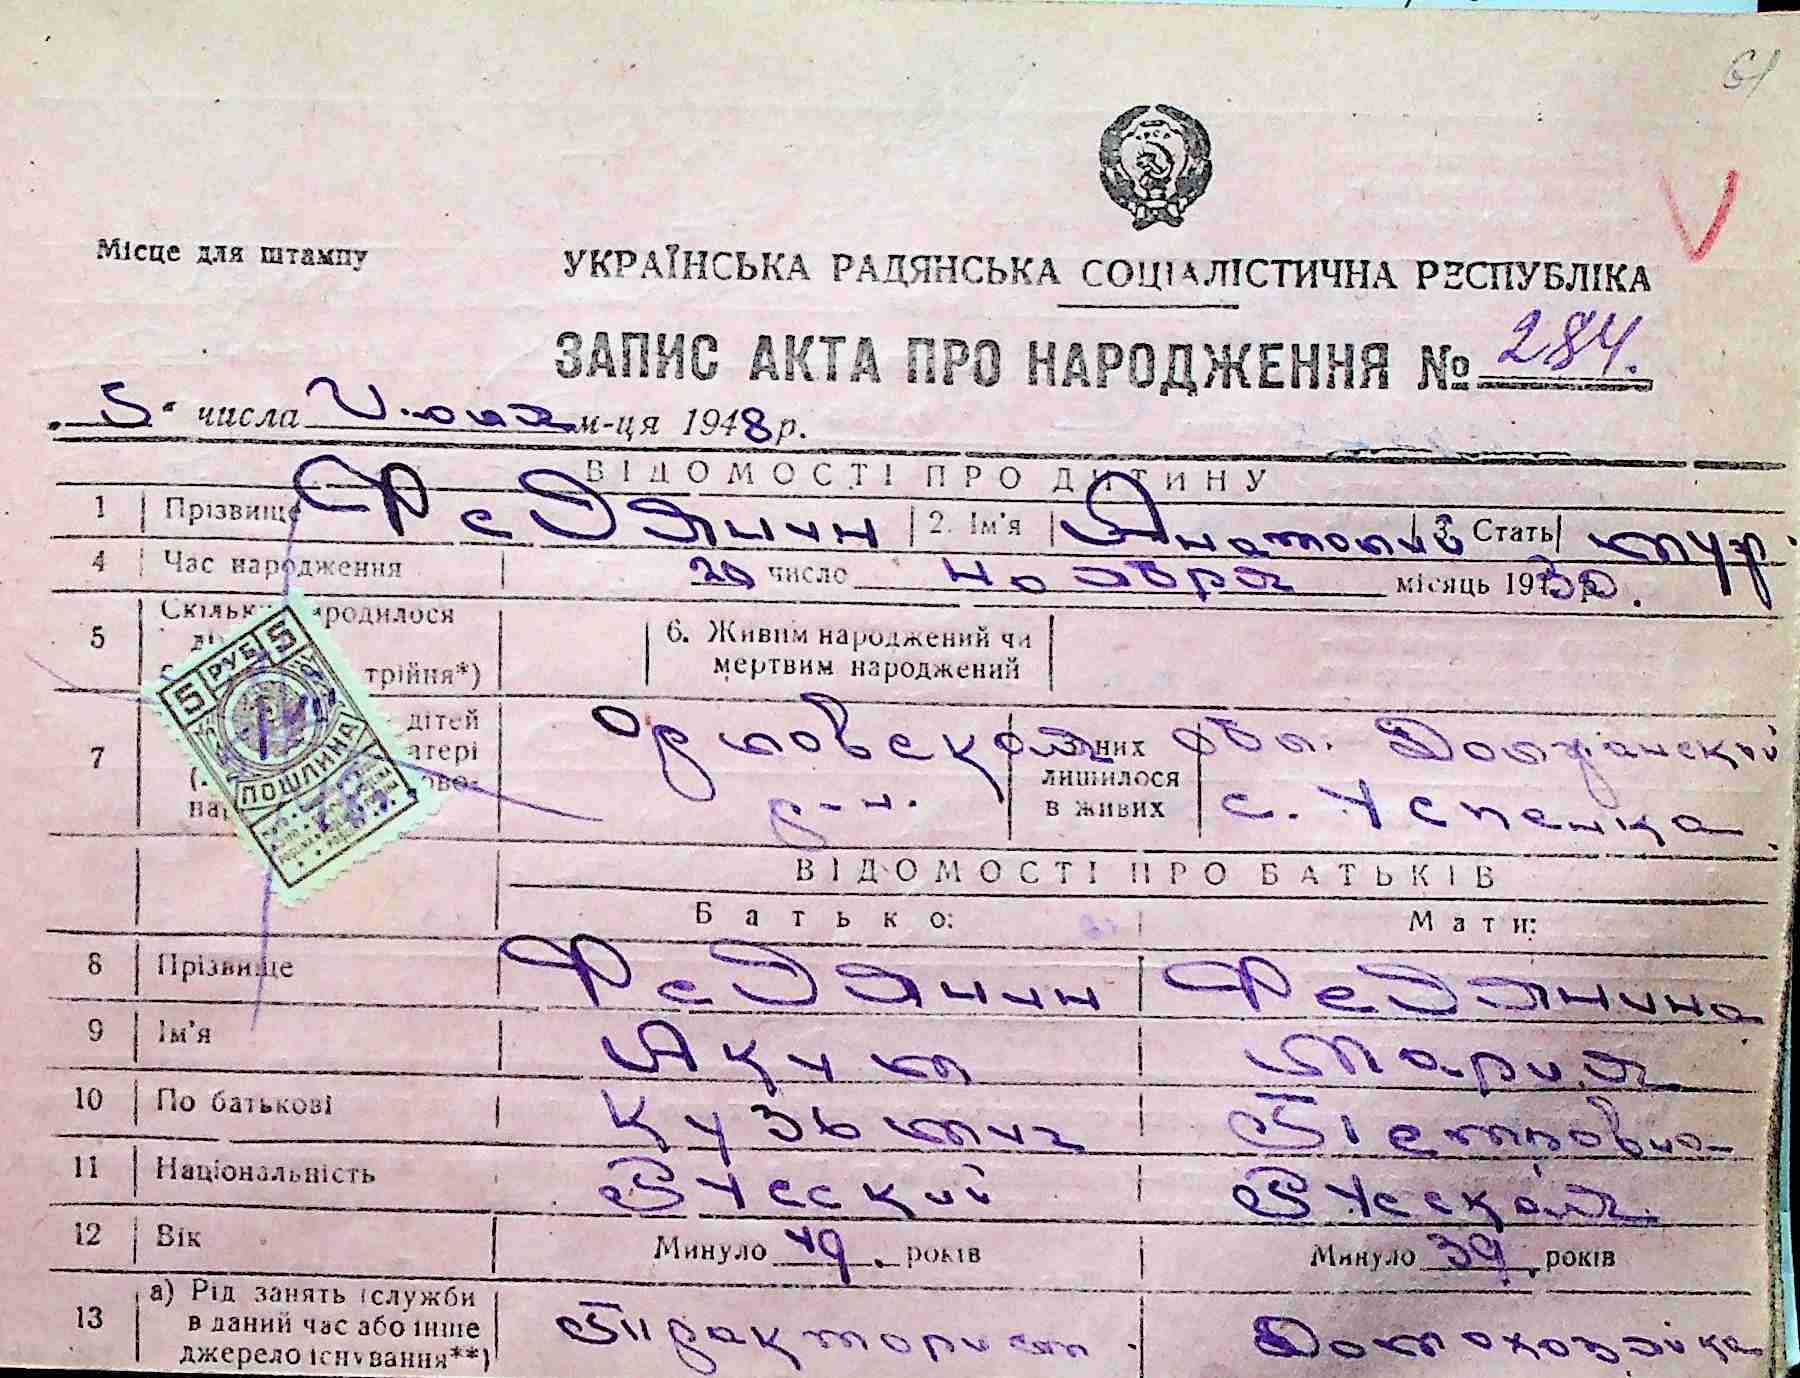 61
Місце для штампу
УКРАЇНСЬКА РАДЯНСЬКА СОЦІАЛІСТИЧНА РЕСПУБЛІКА
ЗАПИС АКТА ПРО НАРОДЖЕННЯ № 284.
5 числа Июля м-ця 1948 р.
ВІДОМОСТІ ПРО ДИТИНУ
1 Прізвище Федянин 2. Ім'я Анатолий 3. Стать муж.
4 Час народження 20 число ноября місяць 1930
5 народилося трійня*) 6. Живим народжений чи мертвим народжений
7 дітей Орловской них лишилося в живих обл. Должанский р-н. с. Успенка
ВІДОМОСТІ ПРО БАТЬКІВ
Батько: Мати:
8 Прізвище Федянин Федянина
9 Ім'я Аким Мария
10 По батькові Кузьмич Петровна
11 Національність Русский Русская
12 Вік Минуло 49. років Минуло 39. років
13 а) Рід занять (служби в даний час або інше джерело існування**) Тракторист Домохозяйка
5 РУБ 5
ПОШЛИНА